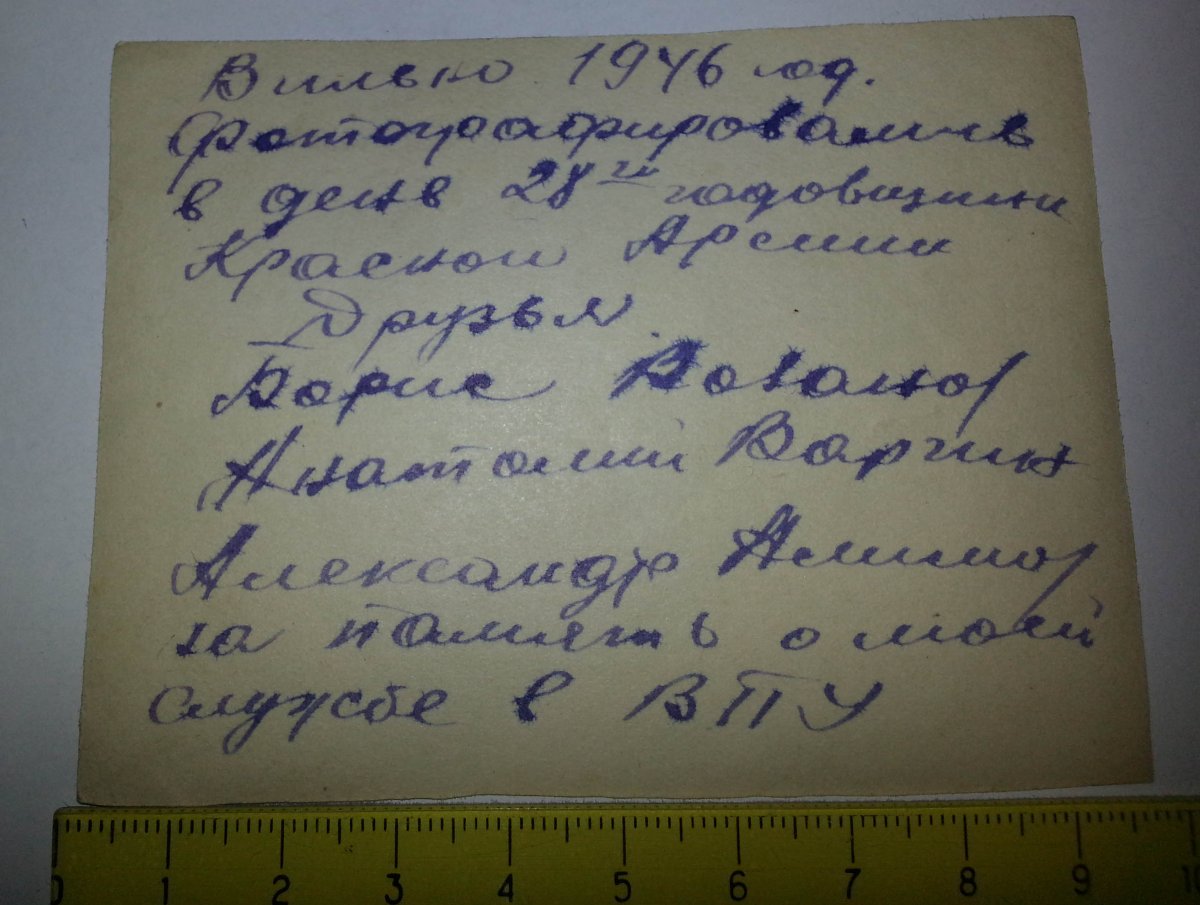 Вильно 1946 год.
Фотографировались
в день 28ой годовщины
Красной Армии
Друзья
Борис
Анатолий Варгин
Александр Алимов
на память о моей
службе в ВПУ
0 1 2 3 4 5 6 7 8 9 10